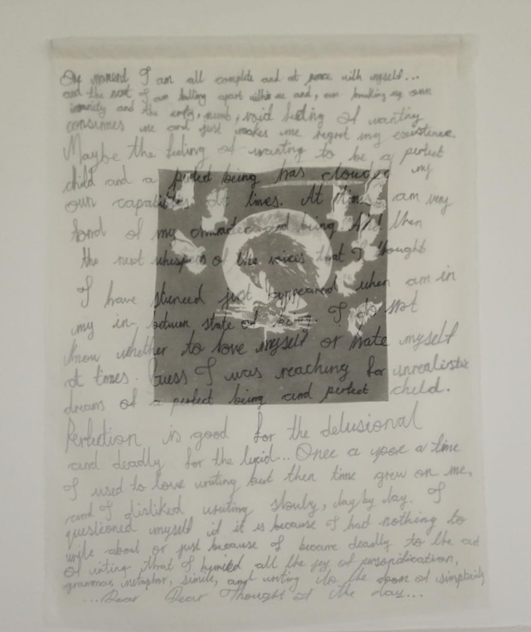 One moment I am all complete and at peace with myself...
and the next I am falling apart within me and, am breaking my own
insanity and the empty, void feeling of wanting
consumes me and just makes me regret my existence.
Maybe the feeling of wanting to be a perfect
child and a perfect being has clouded my
own capabilities at times. At times I am very
fond of my character and being. And then
the next whispers of the voices that I thought
I have silenced just appeared when am in
my in-between state of being. I do not
know whether to love myself or hate myself
at times. Guess I was reaching for unrealistic
dreams of a perfect being and perfect child.
Perfection is good for the delusional
and deadly for the lucid... Once a upon a time
I used to love writing but then time grew on me,
and I disliked writing slowly, day by day. I
questioned myself if it is because I had nothing to
write about or just because I became deadly to the art
of writing that I all the joy of personification,
grammar, metaphor, simile, and writing to the of simplicity
... Dear Dear Thought of the day...